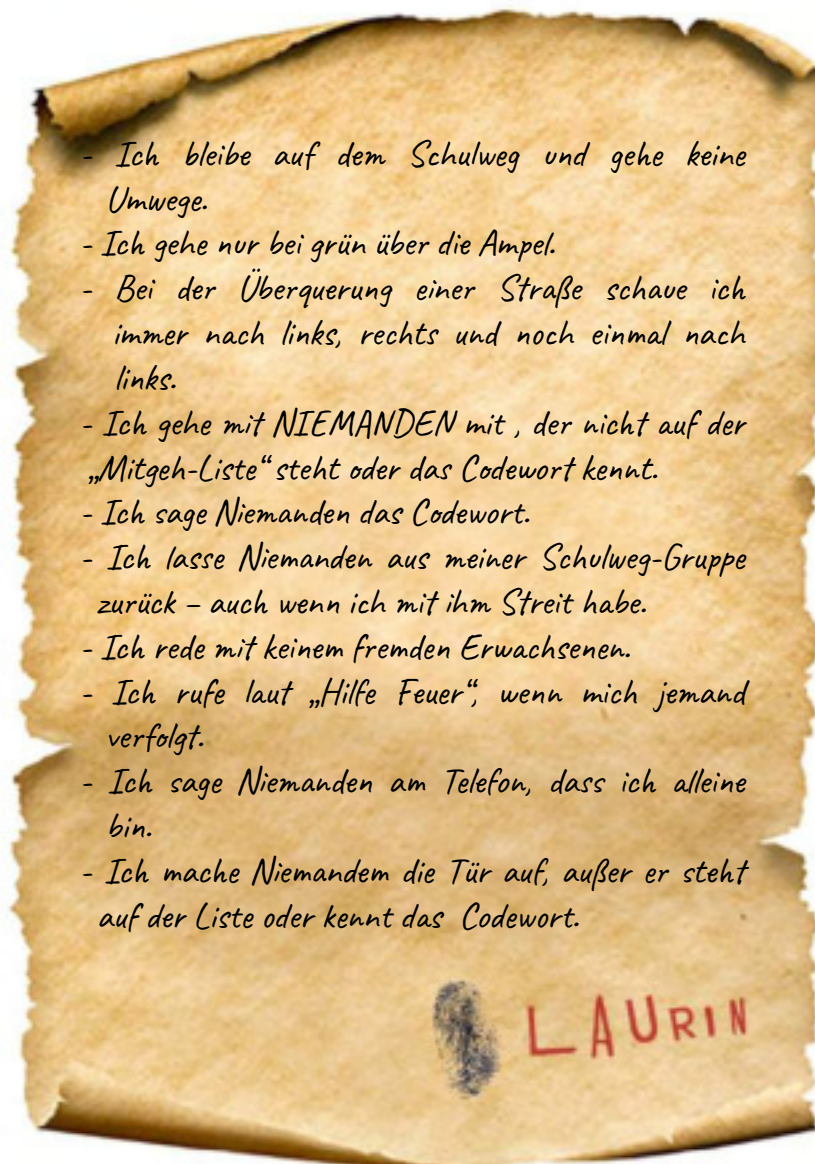 - Ich bleibe auf dem Schulweg und gehe keine
Umwege.
- Ich gehe nur bei grün über die Ampel.
- Bei der Überquerung einer Straße schaue ich
immer nach links, rechts und noch einmal nach
links.
- Ich gehe mit NIEMANDEN mit , der nicht auf der
„Mitgeh-Liste“ steht oder das Codewort kennt.
- Ich sage Niemanden das Codewort.
- Ich lasse Niemanden aus meiner Schulweg-Gruppe
zurück – auch wenn ich mit ihm Streit habe.
- Ich rede mit keinem fremden Erwachsenen.
- Ich rufe laut „Hilfe Feuer“, wenn mich jemand
verfolgt.
- Ich sage Niemanden am Telefon, dass ich alleine
bin.
- Ich mache Niemandem die Tür auf, außer er steht
auf der Liste oder kennt das Codewort.
LAURIN